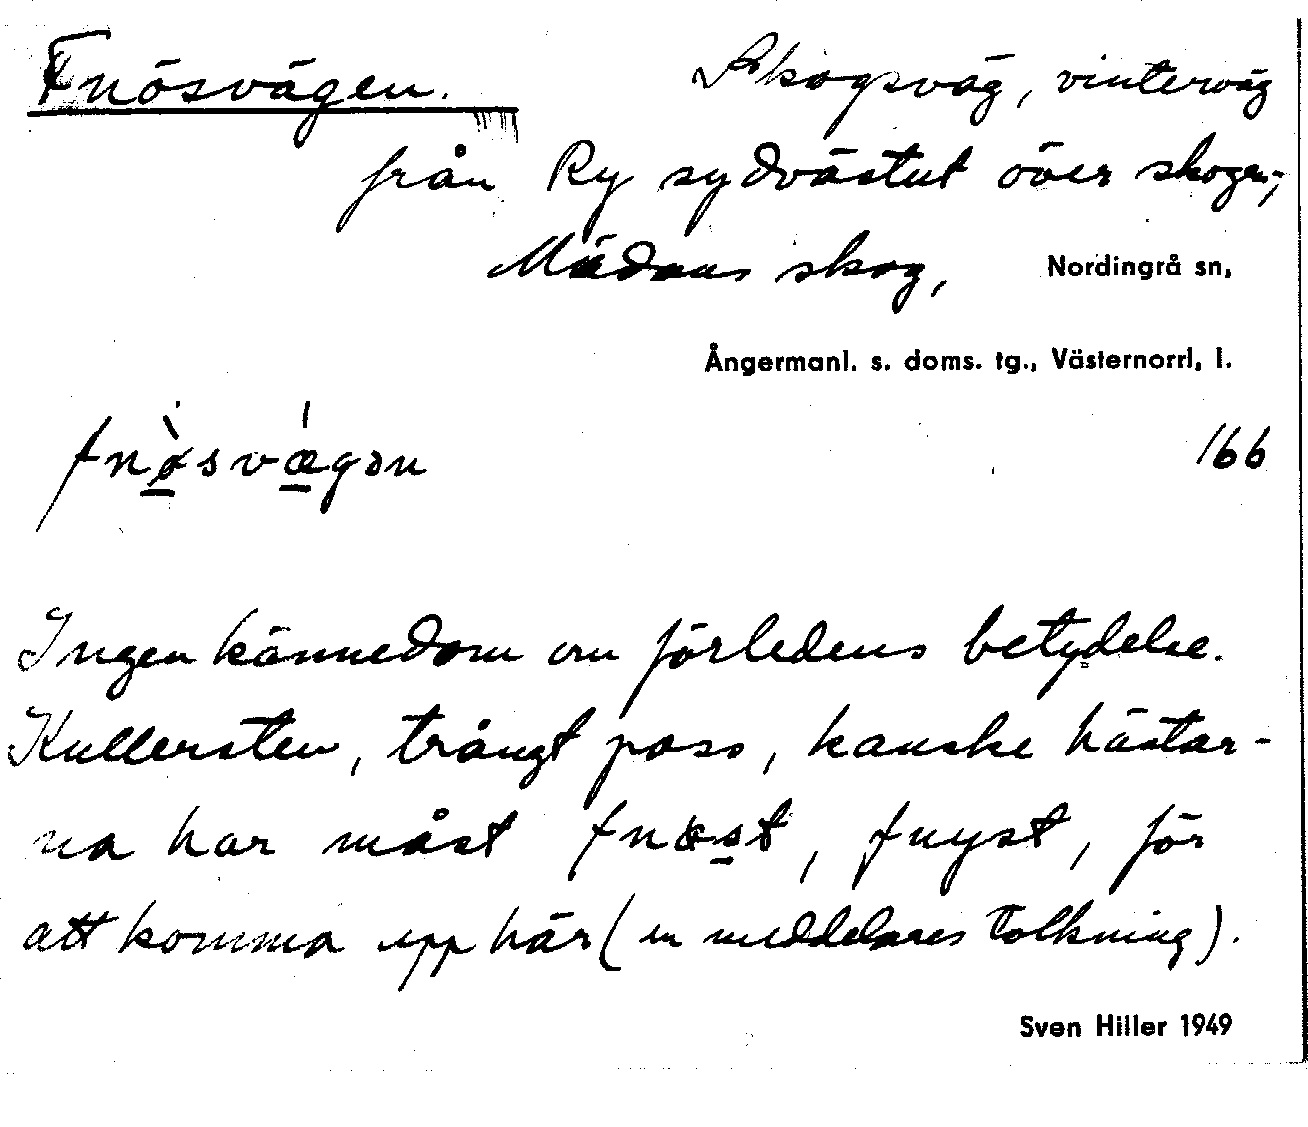 Fnösvägen. Skogsväg, vinterväg
från Ry sydvästut över skogen;
Mädans skog, Nordingrå sn,
Ångermanl. s. doms. tg., Västernorrl, l.
fnø̀svǽgən 166
Ingen kännedom om förledens betydelse.
Kullersten, trångt pass, kanske hästar-
na har måst fnøst, fnyst, för
att komma upp här (en meddelares tolkning).
Sven Hiller 1949